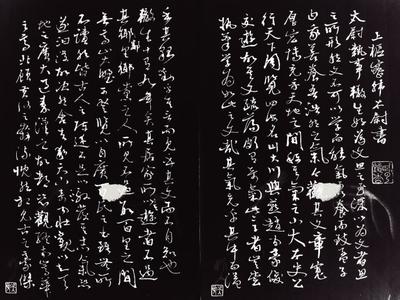 上樞密韓太尉書
太尉執事轍生好為文思之至深以為文者氣
之所形然文不可以學而能氣可以養而致孟子
曰我善養吾浩然之氣今觀其文章寬
厚宏博充乎天地之間稱其氣之小大太史公
行天下周覽四海名山大川與燕趙間豪俊
交遊故其文疏蕩頗有奇氣此二子者豈嘗
執筆學為如此之文哉其氣充乎其中而溢
乎其貌動乎其言而見乎其文而不自知也
轍生十有九年矣其居家所與遊者不過
其鄰里鄉黨之人所見不過數百里之間
無高山大野可登覽以自廣百氏之書雖無所
不讀然皆古人之陳迹不足以激發其志氣恐
遂汩沒故決然捨去求天下奇聞壯觀以知天
地之廣大過秦漢之故都恣觀終南嵩華
之高北顧黃河之奔流慨然想見古之豪傑